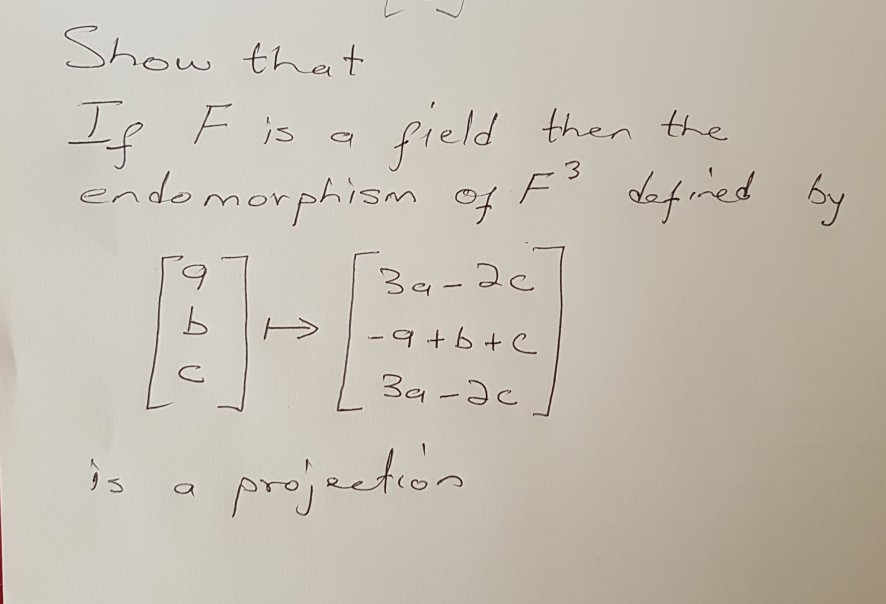 Show that
If F is a field then the
endomorphism of F³ defined by
[a b c] ↦ [3a-2c -a+b+c 3a-2c]
is a projection